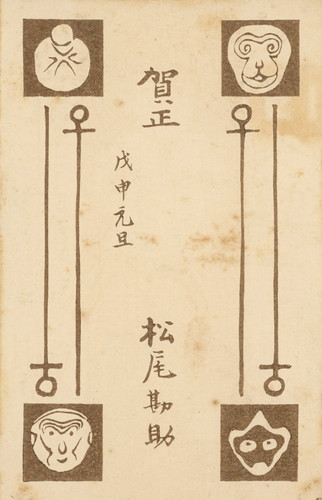 賀正
戊申元旦
松尾勘助